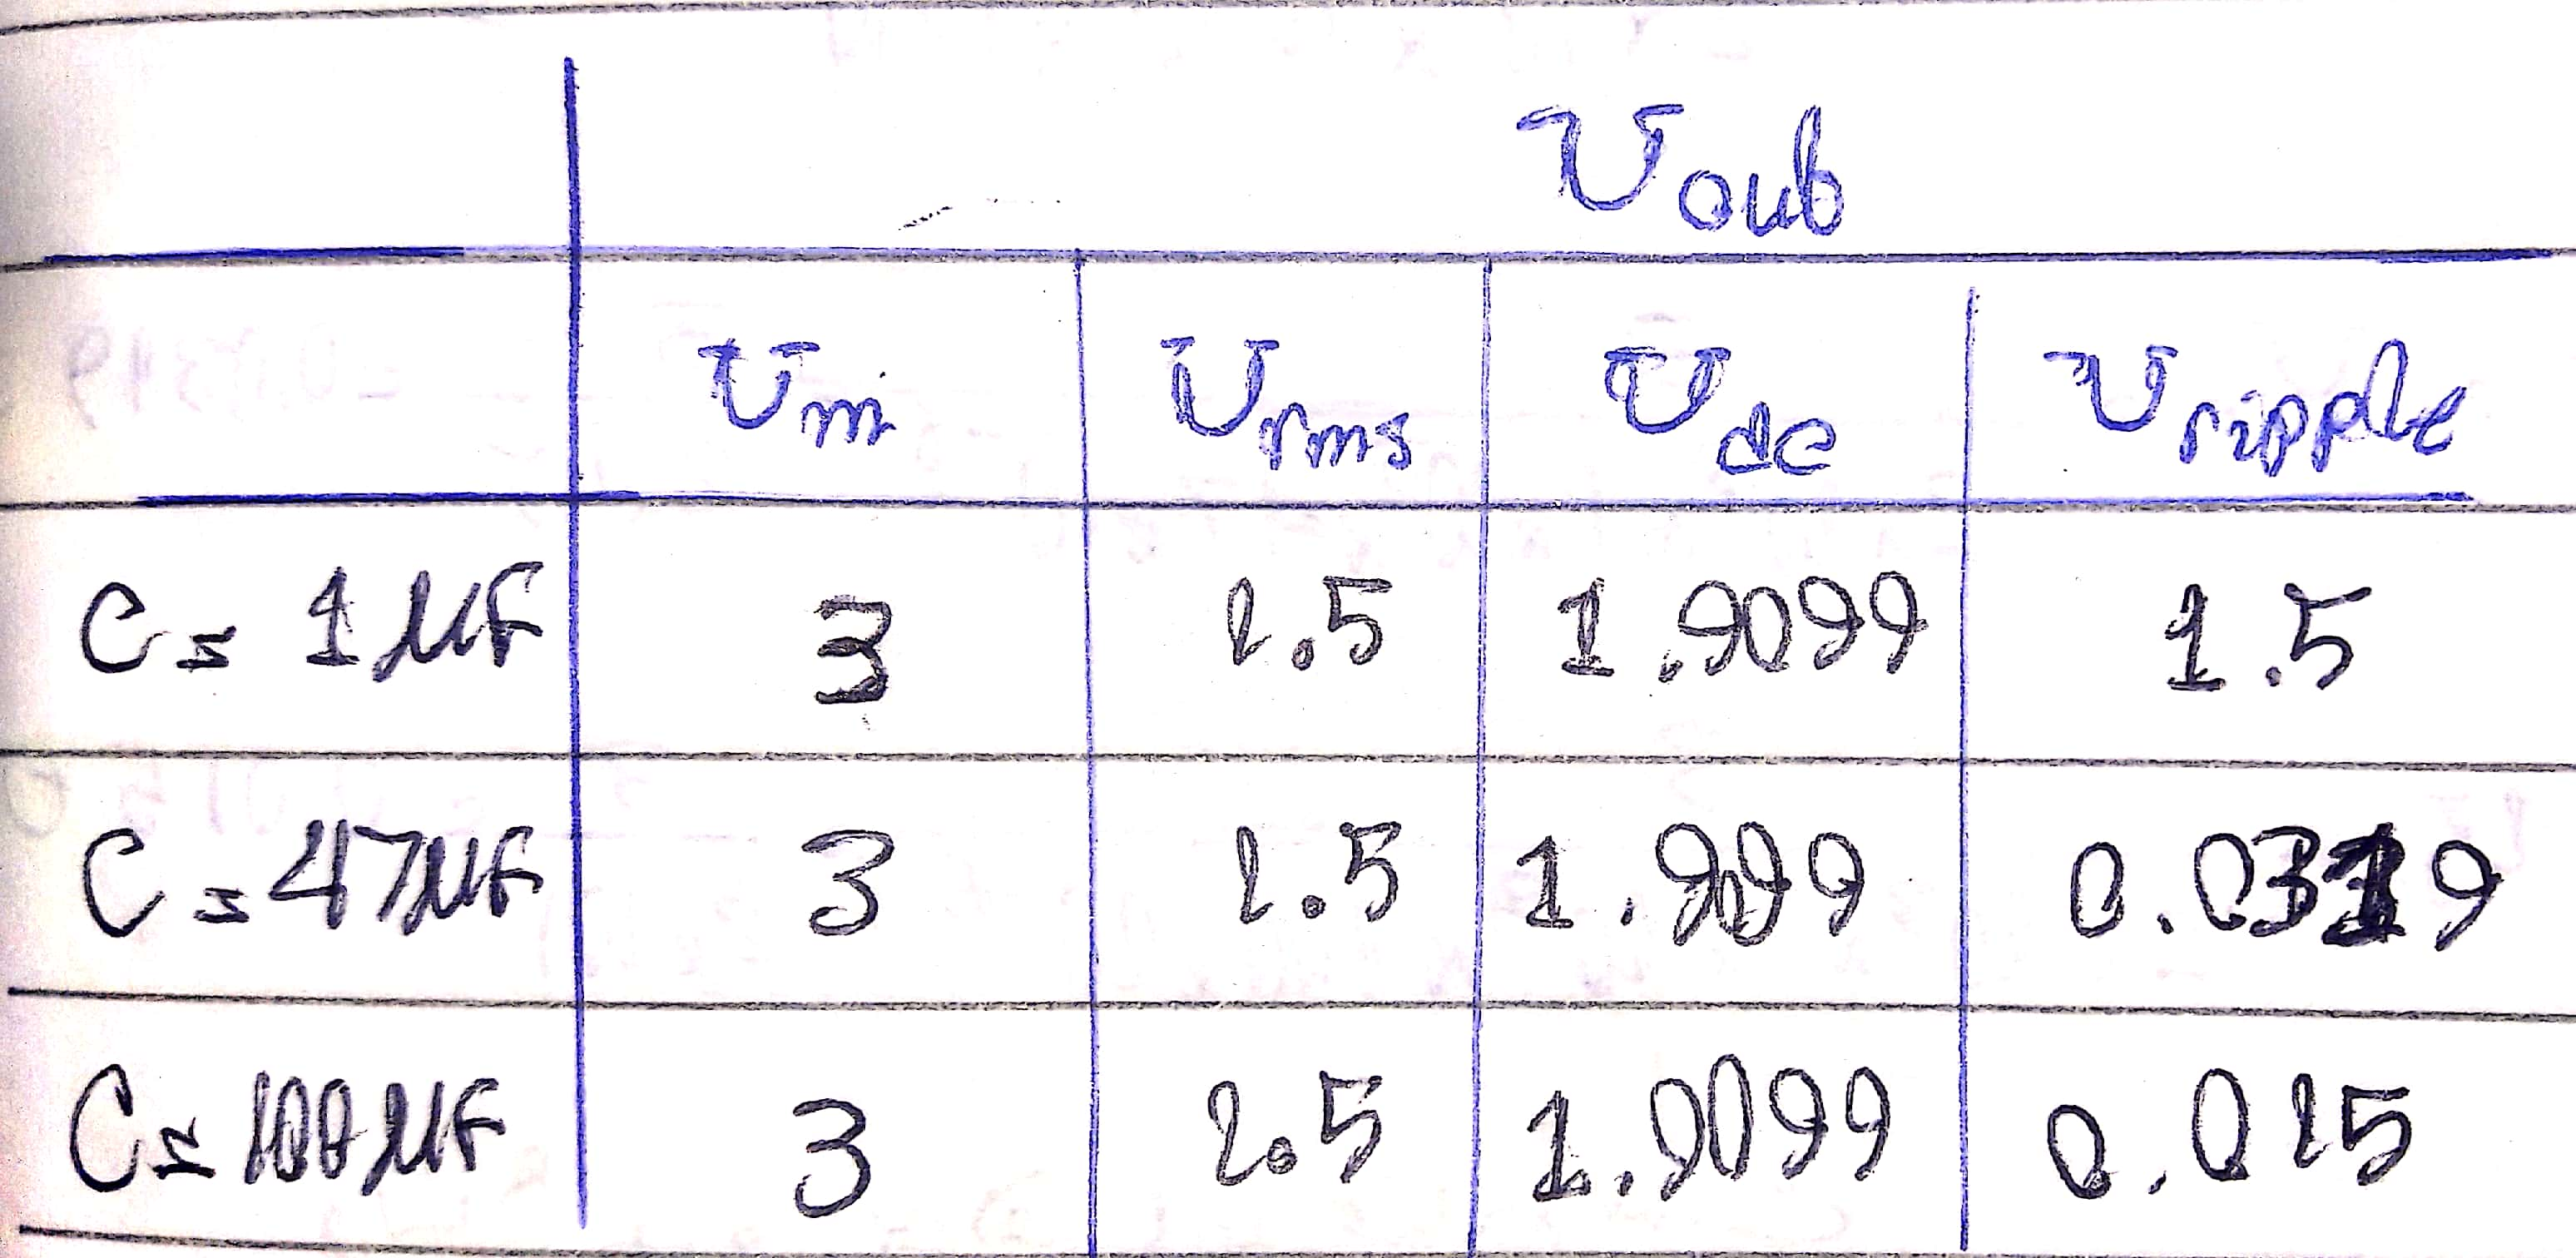 Vout
Vm Vrms Vdc Vripple
C = 1 μF 3 1.5 1.9099 1.5
C = 47 μF 3 1.5 1.9099 0.0319
C = 100 μF 3 1.5 1.9099 0.015